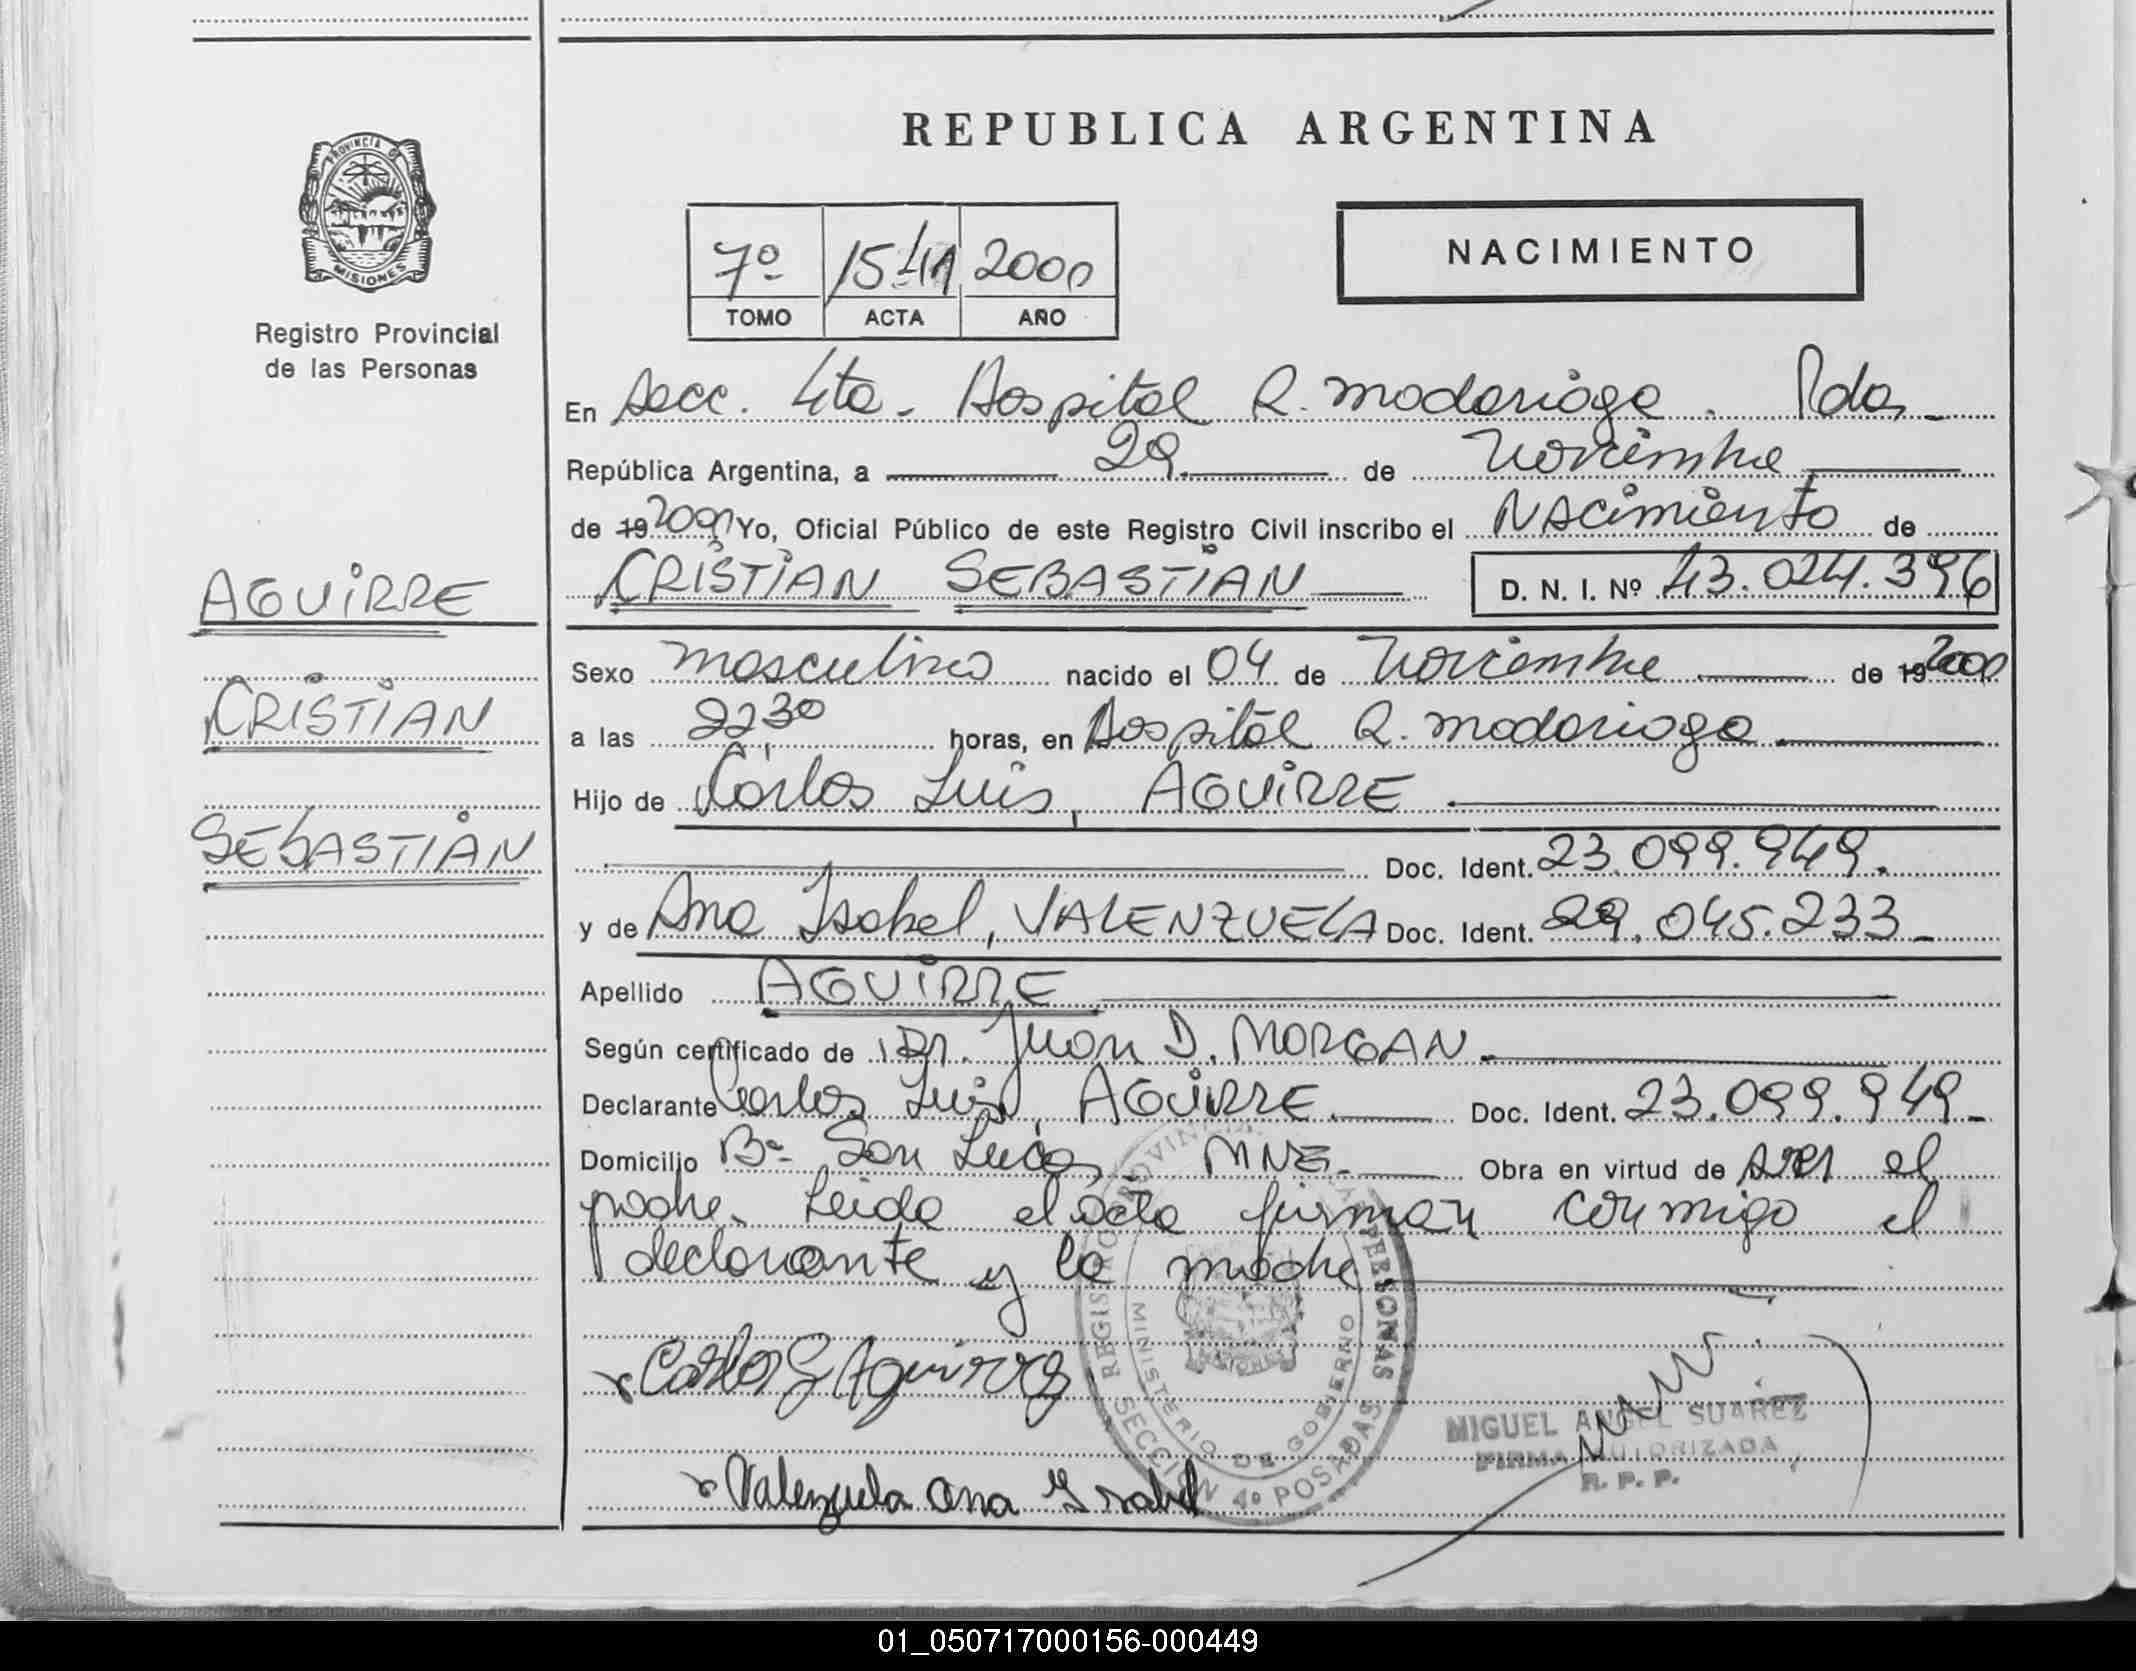 REPUBLICA ARGENTINA
PROVINCIA DE
MISIONES
Registro Provincial
de las Personas
7º 1541 2000
TOMO ACTA AÑO
NACIMIENTO
En Secc. 4ta. Hospital R. Madariaga. Pdas
República Argentina, a 29 de Noviembre
de 19 2000 Yo, Oficial Público de este Registro Civil inscribo el Nacimiento de
AGUIRRE
CRISTIAN
SEBASTIAN
CRISTIAN SEBASTIAN D. N. I. Nº 43.024.396
Sexo masculino nacido el 04 de Noviembre de 19 2000
a las 2230 horas, en Hospital R. Madariaga.
Hijo de Carlos Luis, AGUIRRE
Doc. Ident. 23.099.949.
y de Ana Isabel, VALENZUELA Doc. Ident. 29.045.233
Apellido AGUIRRE
Según certificado de Dr. Juan D. MORGAN.
Declarante Carlos Luis, AGUIRRE. Doc. Ident. 23.099.949
Domicilio Bº San Lucas MNES. Obra en virtud de ser el
padre. Leida el acta firman conmigo el
declarante y la madre
Carlos L Aguirre
Valenzuela Ana Ysabel
REGISTRO PROVINCIAL PERSONAS
MINISTERIO DE GOBIERNO
SECCION 4º POSADAS
MIGUEL ANGEL SUAREZ
FIRMA AUTORIZADA
R. P. P.
01_050717000156-000449